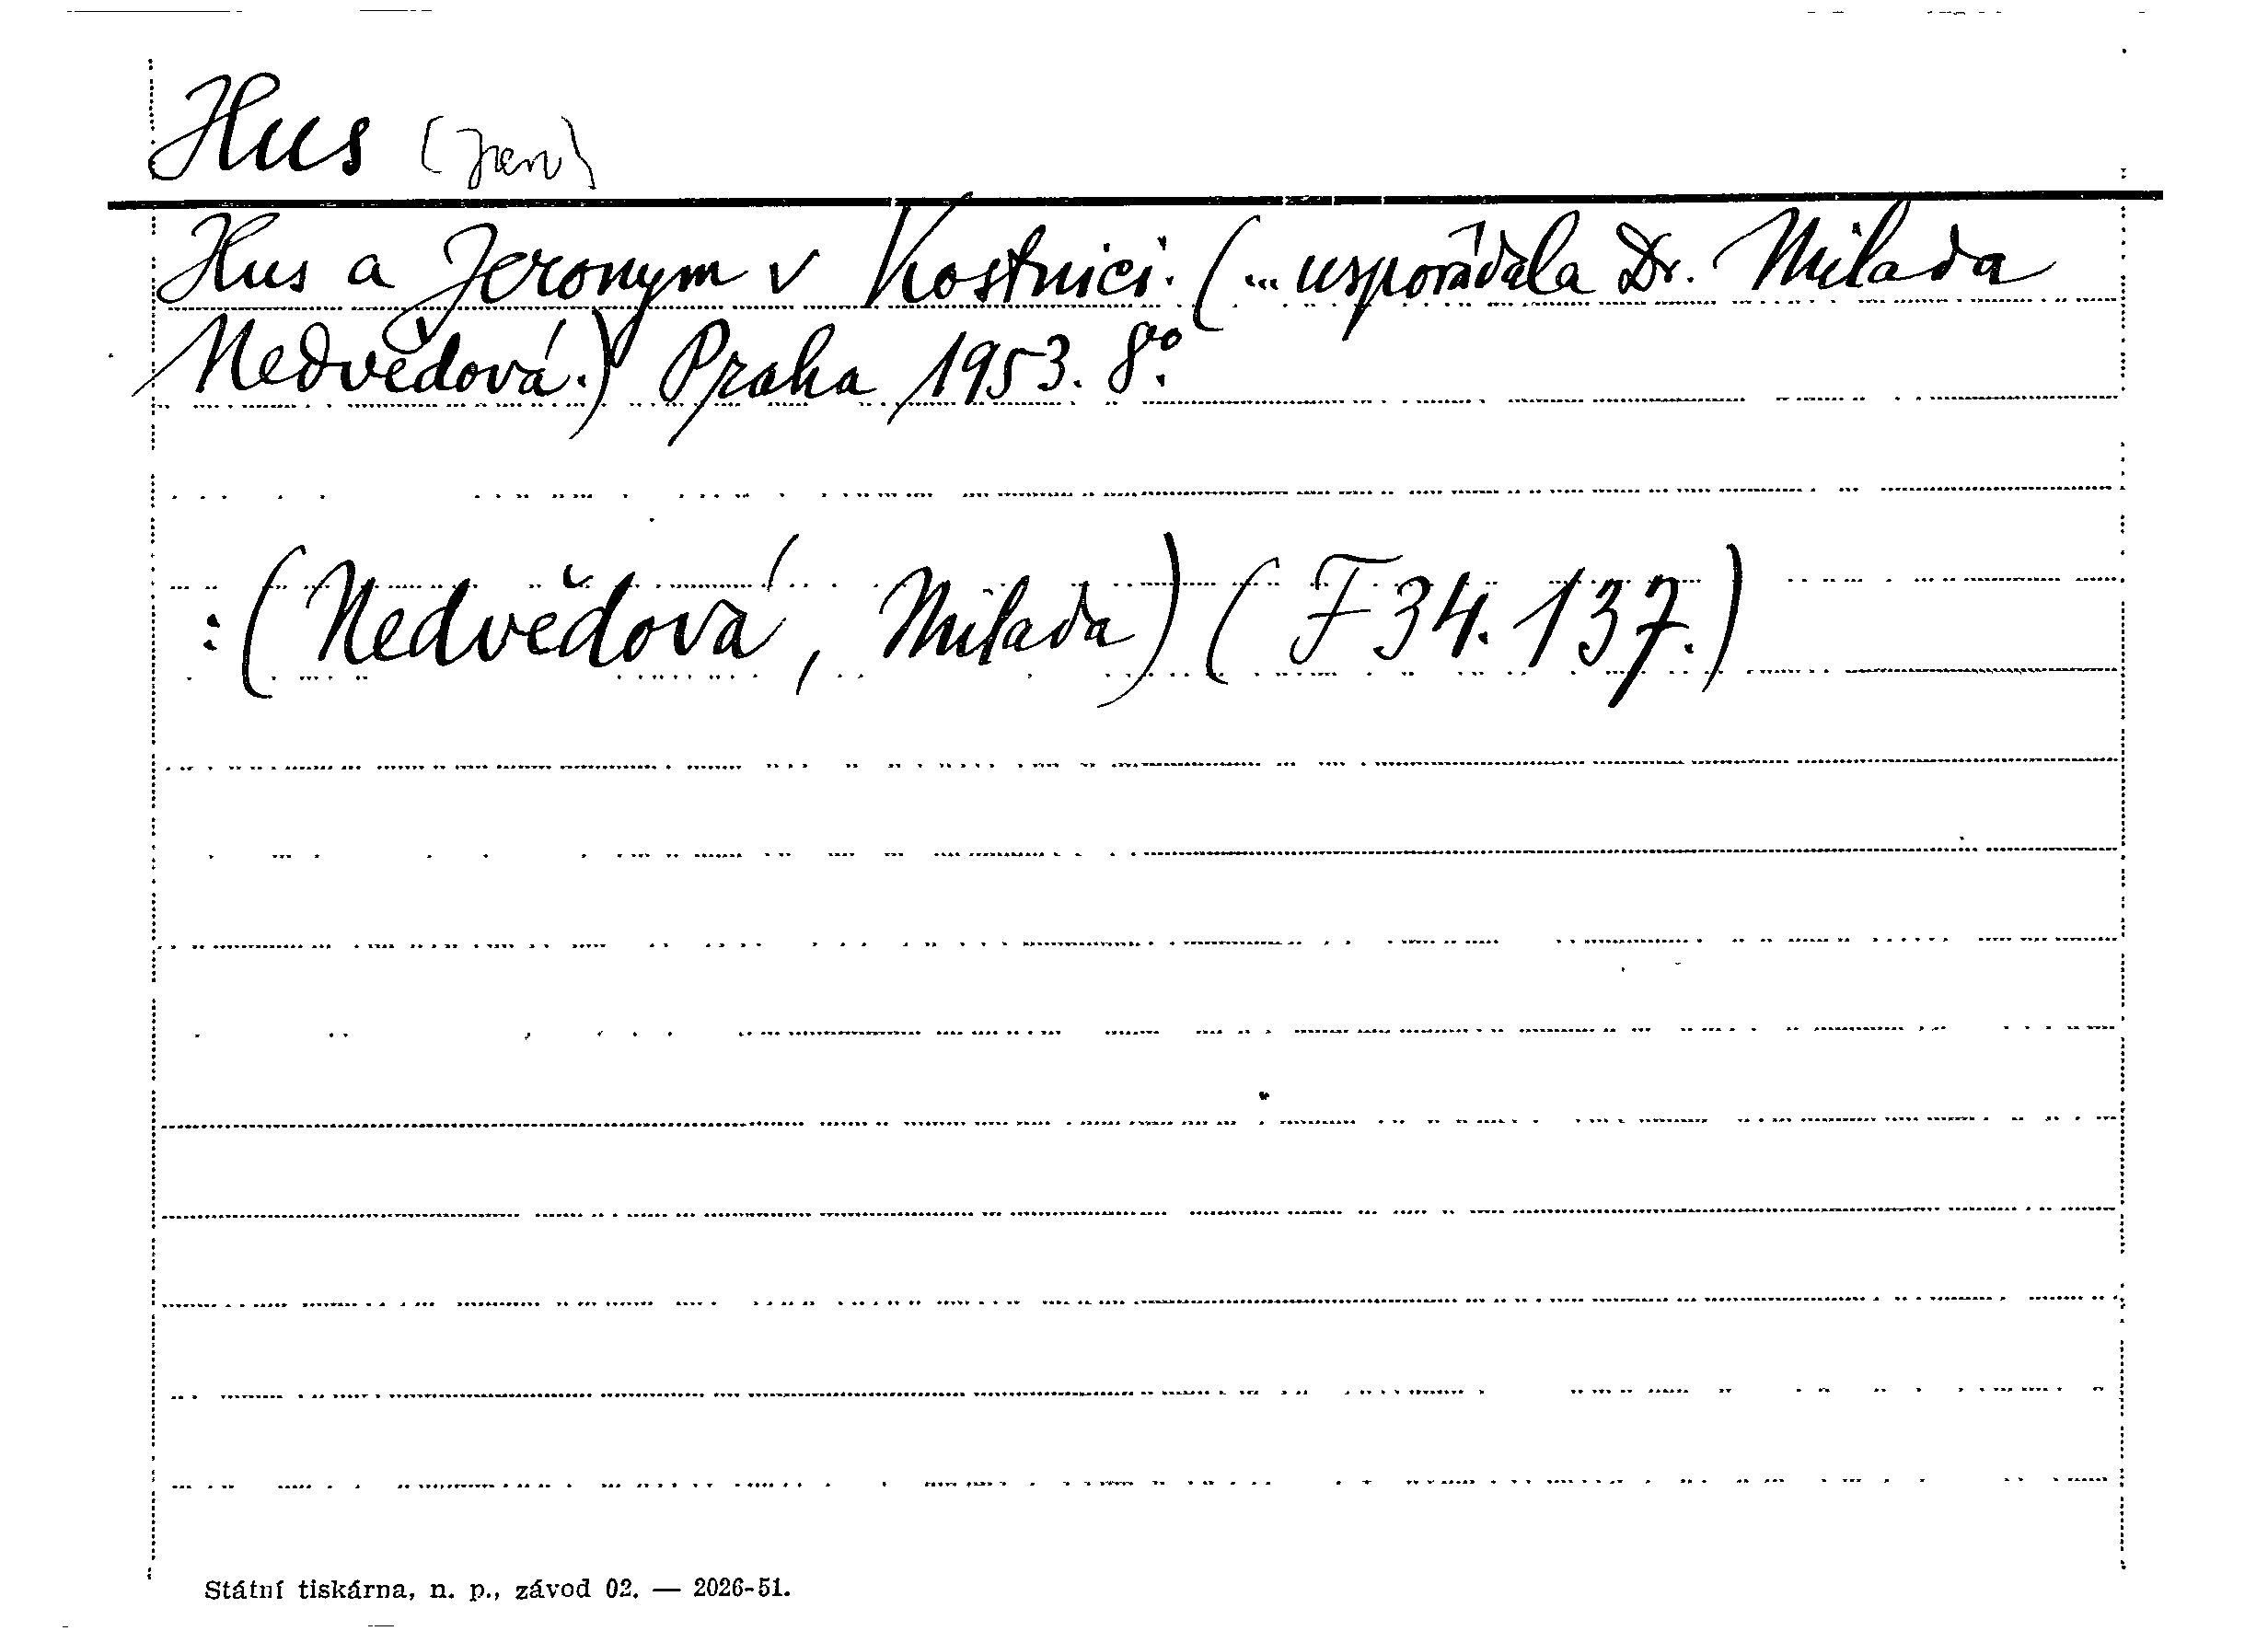 Hus (Jan)
Hus a Jeronym v Kostnici. (... uspořádala Dr. Milada
Nedvědová.) Praha 1953. 8°.
: (Nedvědová, Milada) (F 34.137.)
Státní tiskárna, n. p., závod 02. — 2026-51.